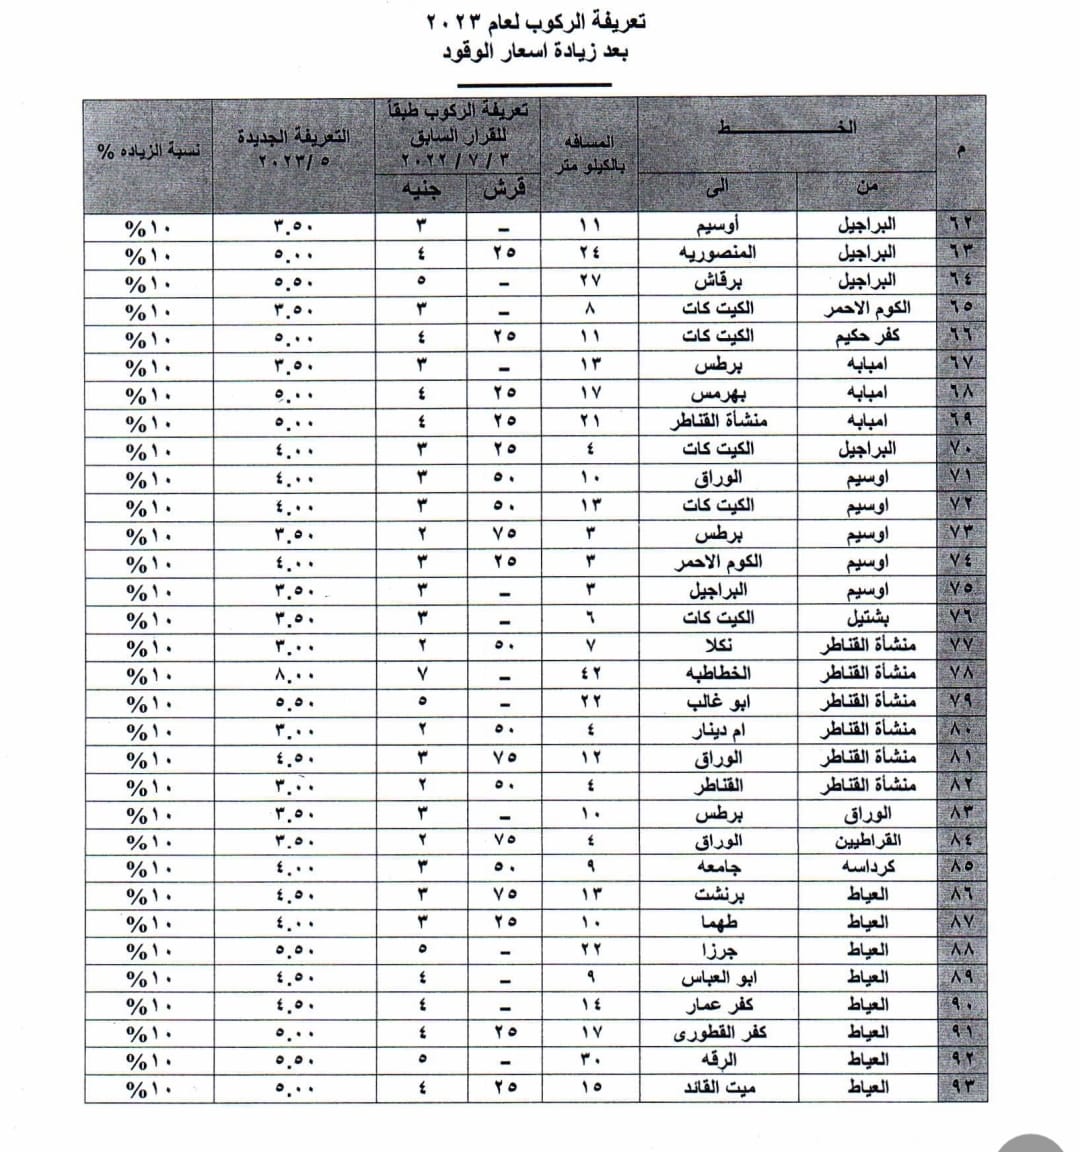 تعريفة الركوب لعام ٢٠٢٣
بعد زيادة اسعار الوقود
م الخـــــــط المسافه بالكيلو متر تعريفة الركوب طبقاً للقرار السابق ٢٠٢٢/٧/٣ التعريفة الجديدة ٢٠٢٣/٥ نسبة الزياده %
من الى قرش جنيه
٦٢ البراجيل أوسيم ١١ – ٣ ٣.٥٠ ١٠%
٦٣ البراجيل المنصوريه ٢٤ ٢٥ ٤ ٥.٠٠ ١٠%
٦٤ البراجيل برقاش ٢٧ – ٥ ٥.٥٠ ١٠%
٦٥ الكوم الاحمر الكيت كات ٨ – ٣ ٣.٥٠ ١٠%
٦٦ كفر حكيم الكيت كات ١١ ٢٥ ٤ ٥.٠٠ ١٠%
٦٧ امبابه برطس ١٣ – ٣ ٣.٥٠ ١٠%
٦٨ امبابه بهرمس ١٧ ٢٥ ٤ ٥.٠٠ ١٠%
٦٩ امبابه منشأة القناطر ٢١ ٢٥ ٤ ٥.٠٠ ١٠%
٧٠ البراجيل الكيت كات ٤ ٢٥ ٣ ٤.٠٠ ١٠%
٧١ اوسيم الوراق ١٠ ٥٠ ٣ ٤.٠٠ ١٠%
٧٢ اوسيم الكيت كات ١٣ ٥٠ ٣ ٤.٠٠ ١٠%
٧٣ اوسيم برطس ٣ ٧٥ ٢ ٣.٥٠ ١٠%
٧٤ اوسيم الكوم الاحمر ٣ ٢٥ ٣ ٤.٠٠ ١٠%
٧٥ اوسيم البراجيل ٣ – ٣ ٣.٥٠ ١٠%
٧٦ بشتيل الكيت كات ٦ – ٣ ٣.٥٠ ١٠%
٧٧ منشأة القناطر نكلا ٧ ٥٠ ٢ ٣.٠٠ ١٠%
٧٨ منشأة القناطر الخطاطبه ٤٢ – ٧ ٨.٠٠ ١٠%
٧٩ منشأة القناطر ابو غالب ٢٢ – ٥ ٥.٥٠ ١٠%
٨٠ منشأة القناطر ام دينار ٤ ٥٠ ٢ ٣.٠٠ ١٠%
٨١ منشأة القناطر الوراق ١٢ ٧٥ ٣ ٤.٥٠ ١٠%
٨٢ منشأة القناطر القناطر ٤ ٥٠ ٢ ٣.٠٠ ١٠%
٨٣ الوراق برطس ١٠ – ٣ ٣.٥٠ ١٠%
٨٤ القراطيين الوراق ٤ ٧٥ ٢ ٣.٥٠ ١٠%
٨٥ كرداسه جامعه ٩ ٥٠ ٣ ٤.٠٠ ١٠%
٨٦ العياط برنشت ١٣ ٧٥ ٣ ٤.٥٠ ١٠%
٨٧ العياط طهما ١٠ ٢٥ ٣ ٤.٠٠ ١٠%
٨٨ العياط جرزا ٢٢ – ٥ ٥.٥٠ ١٠%
٨٩ العياط ابو العباس ٩ – ٤ ٤.٥٠ ١٠%
٩٠ العياط كفر عمار ١٤ – ٤ ٤.٥٠ ١٠%
٩١ العياط كفر القطورى ١٧ ٢٥ ٤ ٥.٠٠ ١٠%
٩٢ العياط الرقه ٣٠ – ٥ ٥.٥٠ ١٠%
٩٣ العياط ميت القائد ١٥ ٢٥ ٤ ٥.٠٠ ١٠%